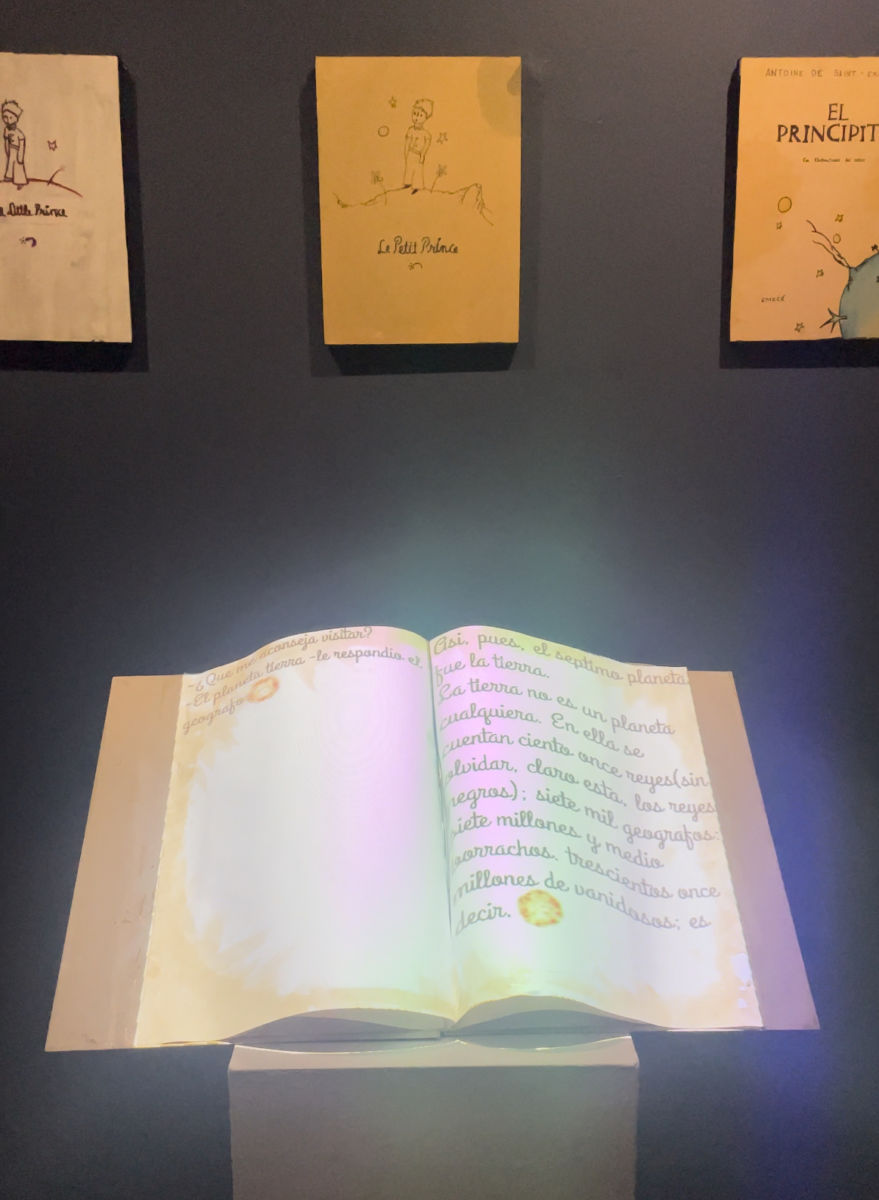 Little Prince
Le Petit Prince
ANTOINE DE SAINT-EX
EL
PRINCIPIT
EMECÉ
-¿Que me aconseja visitar?
-El planeta tierra -le respondio el
geografo
Asi, pues, el septimo planeta
fue la tierra.
La tierra no es un planeta
cualquiera. En ella se
cuentan ciento once reyes(sin
olvidar, claro esta, los reyes
negros); siete mil geografos:
siete millones y medio
borrachos. trescientos once
millones de vanidosos; es
decir.